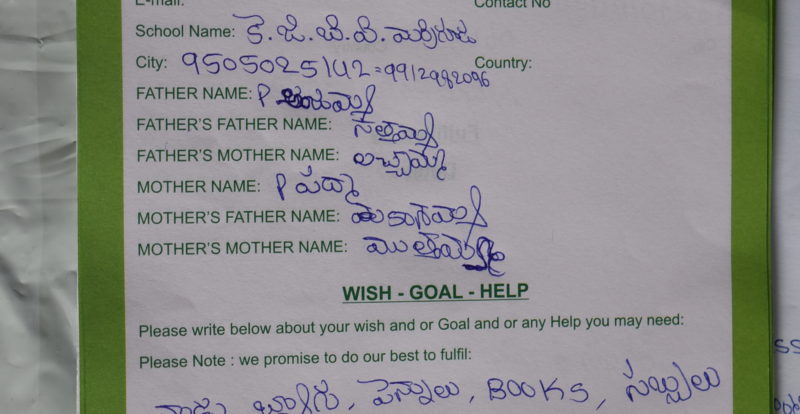 E-mail: Contact No
School Name: కె.జి.బి.వి.మర్రిగూడ
City: 9505025142=9912982096 Country:
FATHER NAME: P
FATHER'S FATHER NAME: సత్తయ్య
FATHER'S MOTHER NAME: లచ్చమ్మ
MOTHER NAME: P పద్మా
MOTHER'S FATHER NAME:
MOTHER'S MOTHER NAME: ముత్తమ్మ
WISH - GOAL - HELP
Please write below about your wish and or Goal and or any Help you may need:
Please Note : we promise to do our best to fulfil:
పెన్నులు, BOOKS, సబ్బులు